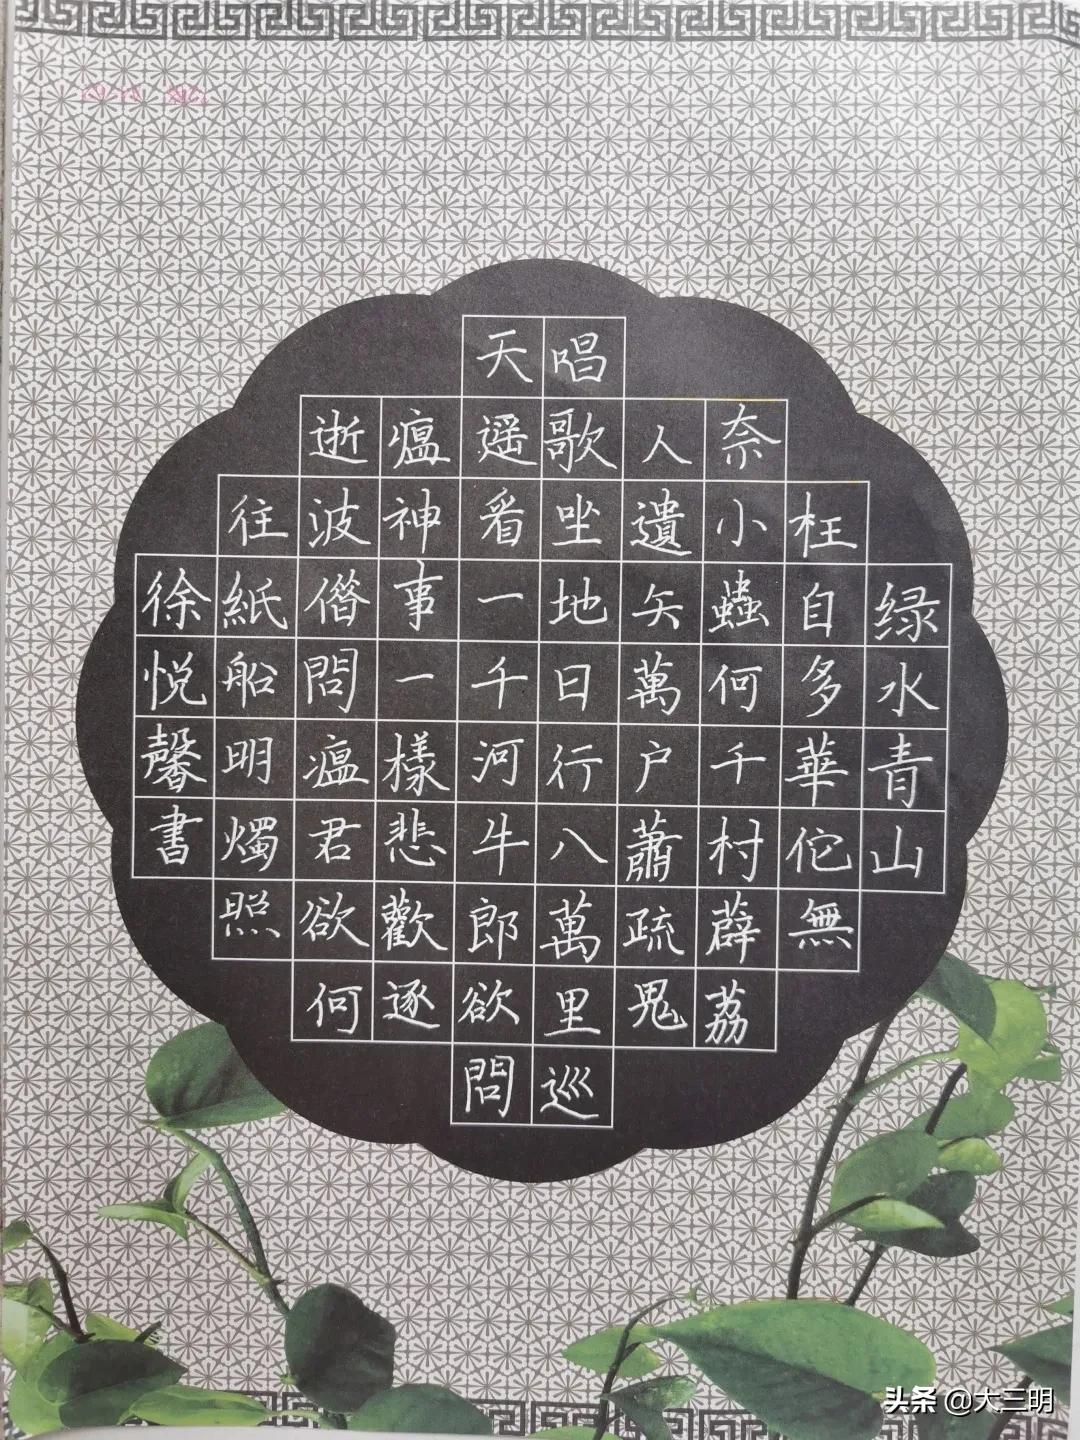 绿水青山
枉自多華佗無
奈小蟲何千村薜荔
人遺矢萬户蕭疏鬼
唱歌坐地日行八萬里巡
天遥看一千河牛郎欲問
瘟神事一樣悲歡逐
逝波僭問瘟君欲何
往紙船明燭照
徐悦馨書
头条 @大三明